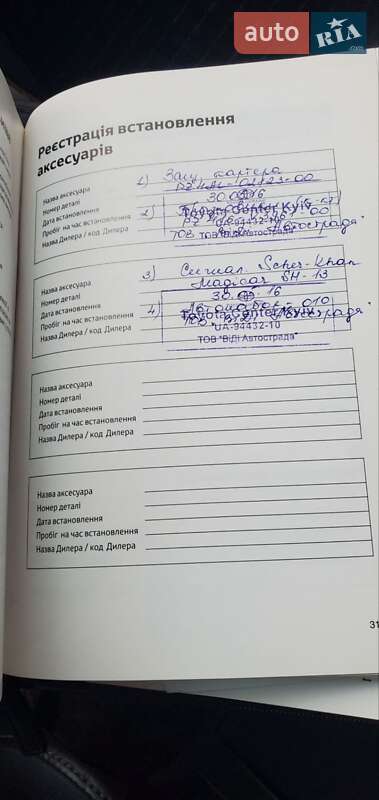 auto RIA
.com
Реєстрація встановлення
аксесуарів
Назва аксесуара
Номер деталі
Дата встановлення
Пробіг на час встановлення
Назва Дилера / код Дилера
1)
30.
16
2)
UA-94432-10
ТОВ "ВіДі Автострада"
Назва аксесуара
Номер деталі
Дата встановлення
Пробіг на час встановлення
Назва Дилера / код Дилера
3) Сигнал. Scher-Khan
Magicar SH-13
30. 16
4)
UA-94432-10
ТОВ "ВіДі Автострада"
Назва аксесуара
Номер деталі
Дата встановлення
Пробіг на час встановлення
Назва Дилера / код Дилера
Назва аксесуара
Номер деталі
Дата встановлення
Пробіг на час встановлення
Назва Дилера / код Дилера
31